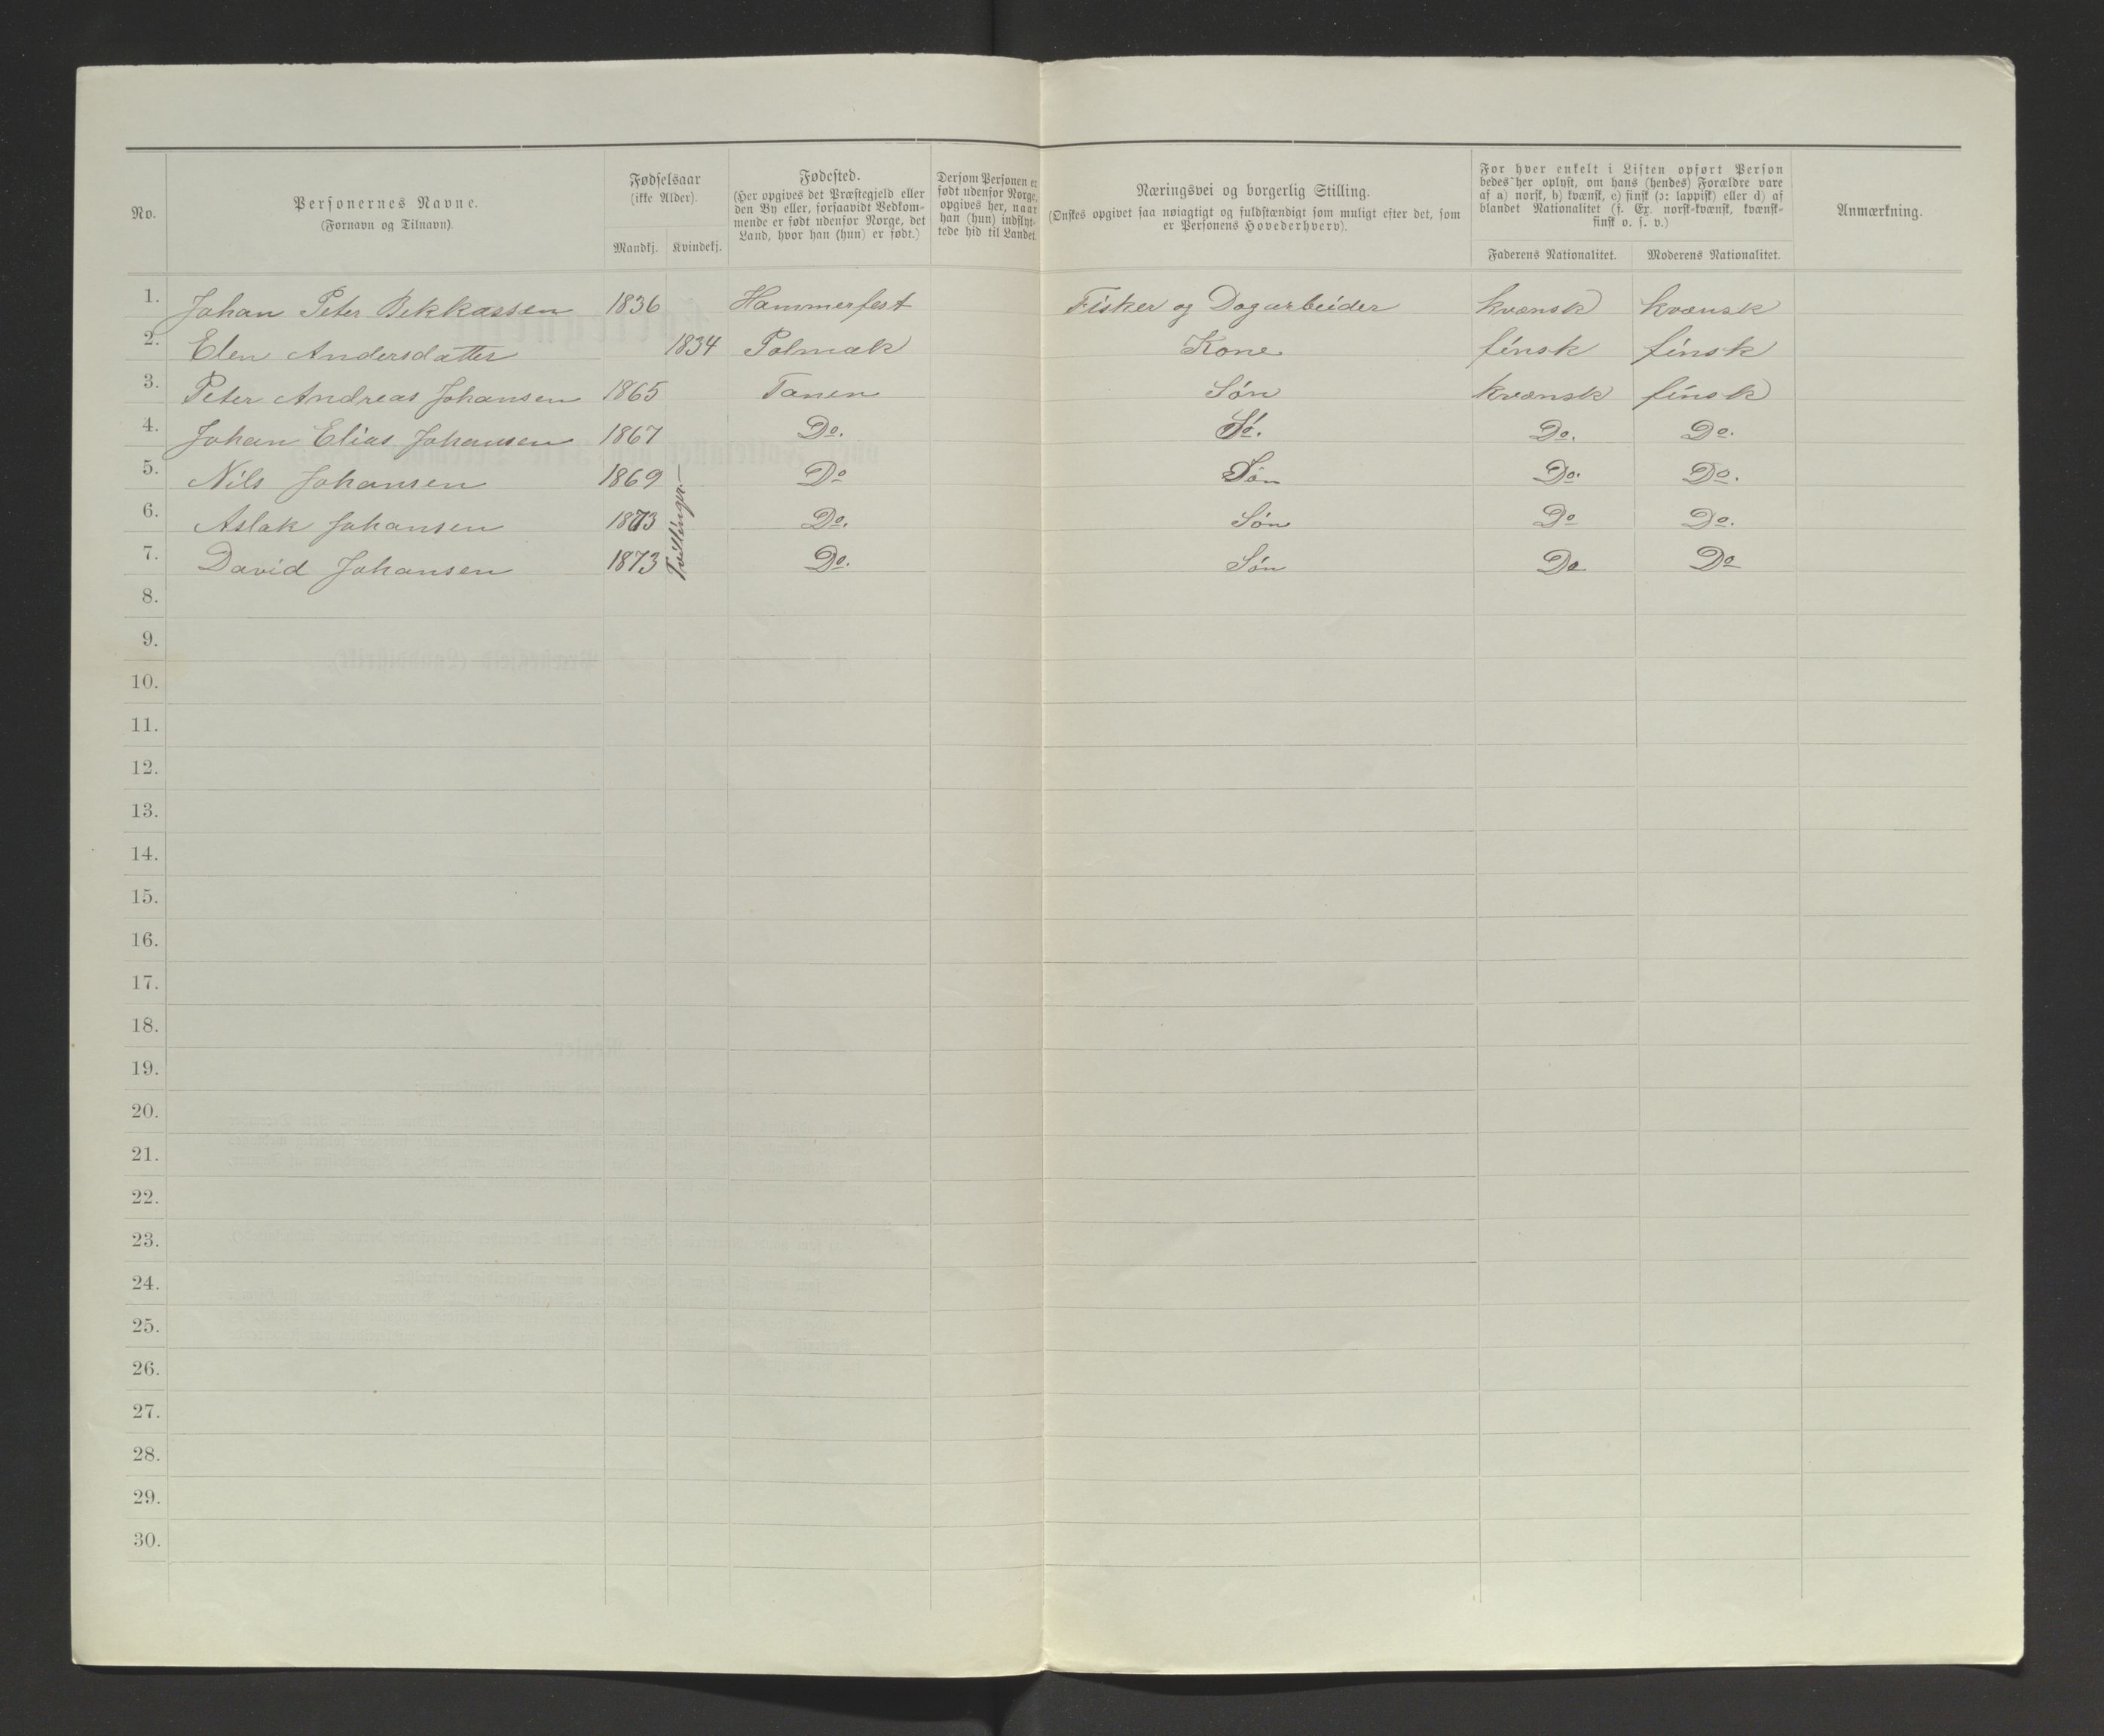 No.
Personernes Navne.
(Fornavn og Tilnavn).
Fødselsaar
(ikke Alder).
Mandkj. Kvindekj.
Fødested.
(Her opgives det Præstegjeld eller
den By eller, forsaavidt Vedkom-
mende er født udenfor Norge, det
Land, hvor han (hun) er født.)
Dersom Personen er
født udenfor Norge,
opgives her, naar
han (hun) indflyt-
tede hid til Landet.
Næringsvei og borgerlig Stilling.
(Ønskes opgivet saa nøiagtigt og fuldstændigt som muligt efter det, som
er Personens Hovederhverv).
For hver enkelt i Listen opført Person
bedes her oplyst, om hans (hendes) Forældre vare
af a) norsk, b) kvænsk, c) finsk (ɔ: lappisk) eller d) af
blandet Nationalitet (f. Ex. norsk-kvænsk, kvænsk-
finsk o. s. v.)
Faderens Nationalitet. Moderens Nationalitet.
Anmærkning.
1. Johan Peter Bekkassen 1836 Hammerfest Fisker og Dagarbeider kvænsk kvænsk
2. Elen Andersdatter 1834 Polmak Kone finsk finsk
3. Peter Andreas Johansen 1865 Tanen Søn kvænsk finsk
4. Johan Elias Johansen 1867 Do. Do. Do.
5. Nils Johansen 1869 Do Søn Do. Do.
6. Aslak Johansen 1873 Do. Søn Do Do.
7. David Johansen 1873 Do. Søn Do Do
Tvillinger.—
8.
9.
10.
11.
12.
13.
14.
15.
16.
17.
18.
19.
20.
21.
22.
23.
24.
25.
26.
27.
28.
29.
30.